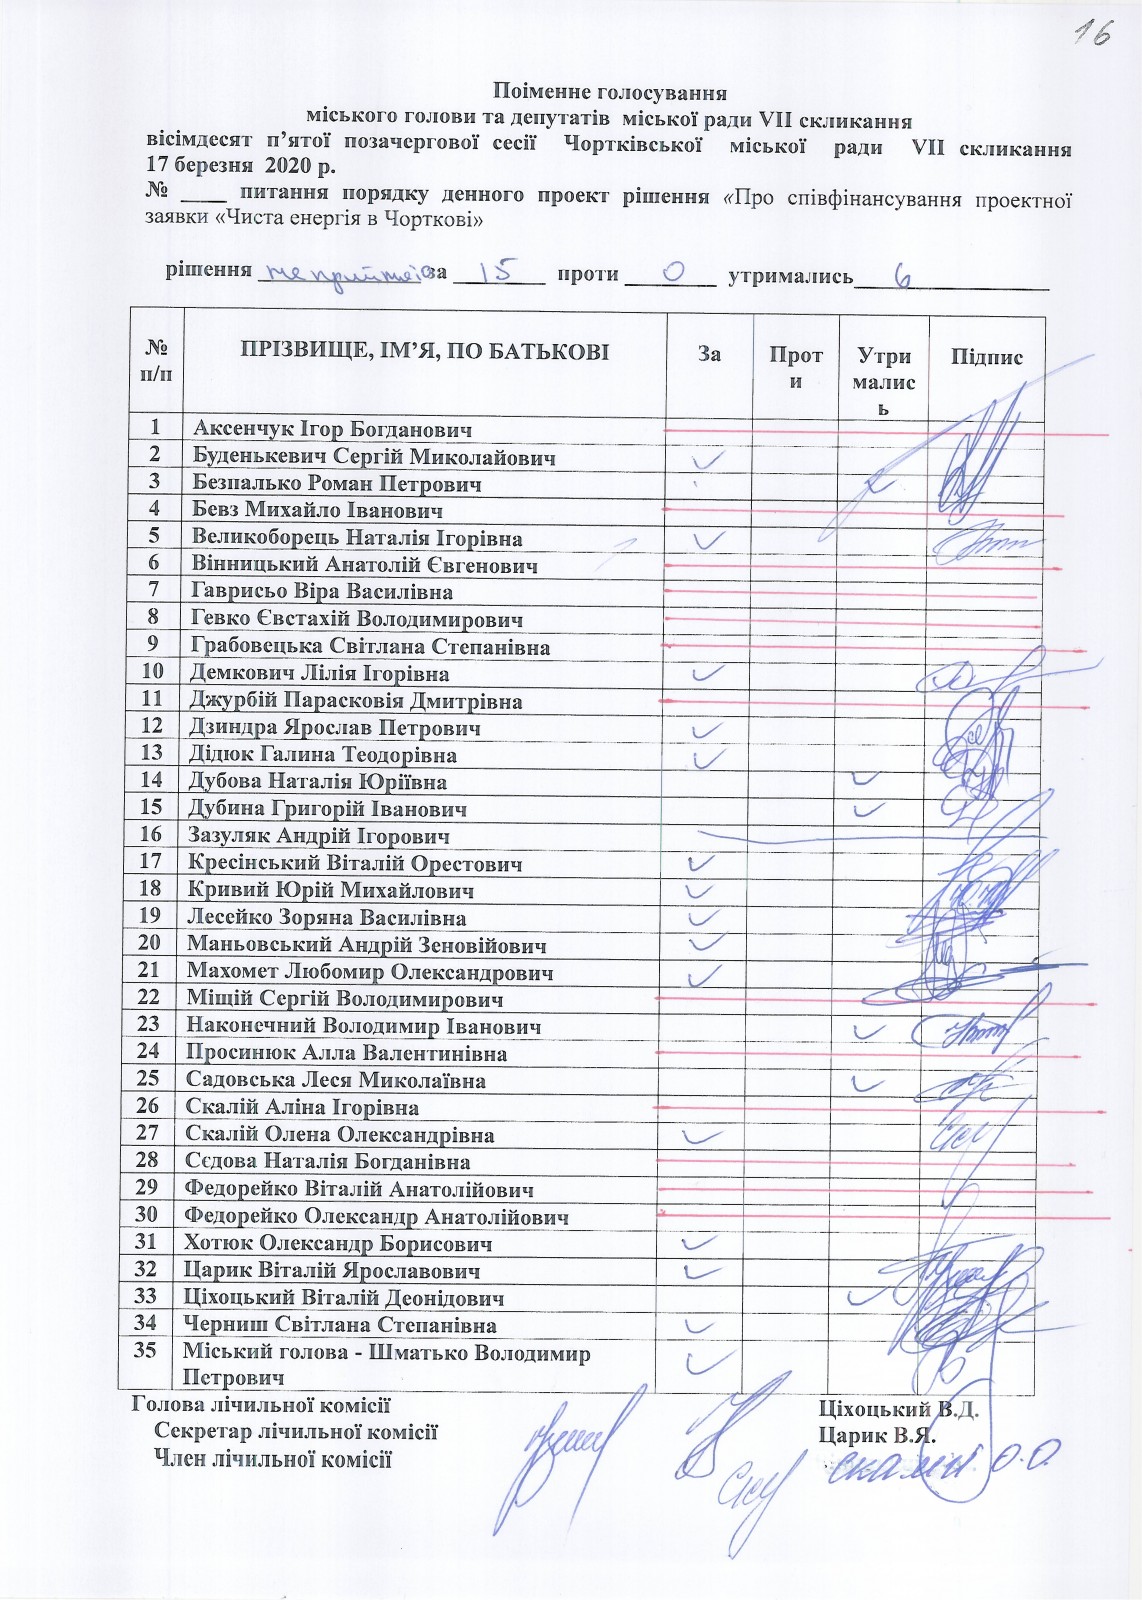 16
Поіменне голосування
міського голови та депутатів міської ради VII скликання
вісімдесят п’ятої позачергової сесії Чортківської міської ради VII скликання
17 березня 2020 р.
№ ____ питання порядку денного проект рішення «Про співфінансування проектної
заявки «Чиста енергія в Чорткові»
рішення не прийнято за 15 проти 0 утримались 6
№ п/п ПРІЗВИЩЕ, ІМ’Я, ПО БАТЬКОВІ За Проти Утрималисъ Підпис
1 Аксенчук Ігор Богданович
2 Буденькевич Сергій Миколайович
3 Безпалько Роман Петрович
4 Бевз Михайло Іванович
5 Великоборець Наталія Ігорівна
6 Вінницький Анатолій Євгенович
7 Гаврисьо Віра Василівна
8 Гевко Євстахій Володимирович
9 Грабовецька Світлана Степанівна
10 Демкович Лілія Ігорівна
11 Джурбій Парасковія Дмитрівна
12 Дзиндра Ярослав Петрович
13 Дідюк Галина Теодорівна
14 Дубова Наталія Юріївна
15 Дубина Григорій Іванович
16 Зазуляк Андрій Ігорович
17 Кресінський Віталій Орестович
18 Кривий Юрій Михайлович
19 Лесейко Зоряна Василівна
20 Маньовський Андрій Зеновійович
21 Махомет Любомир Олександрович
22 Міщій Сергій Володимирович
23 Наконечний Володимир Іванович
24 Просинюк Алла Валентинівна
25 Садовська Леся Миколаївна
26 Скалій Аліна Ігорівна
27 Скалій Олена Олександрівна
28 Сєдова Наталія Богданівна
29 Федорейко Віталій Анатолійович
30 Федорейко Олександр Анатолійович
31 Хотюк Олександр Борисович
32 Царик Віталій Ярославович
33 Ціхоцький Віталій Деонідович
34 Черниш Світлана Степанівна
35 Міський голова - Шматько Володимир
Петрович
Голова лічильної комісії Ціхоцький В.Д.
Секретар лічильної комісії Царик В.Я.
Член лічильної комісії Скалій О.О.